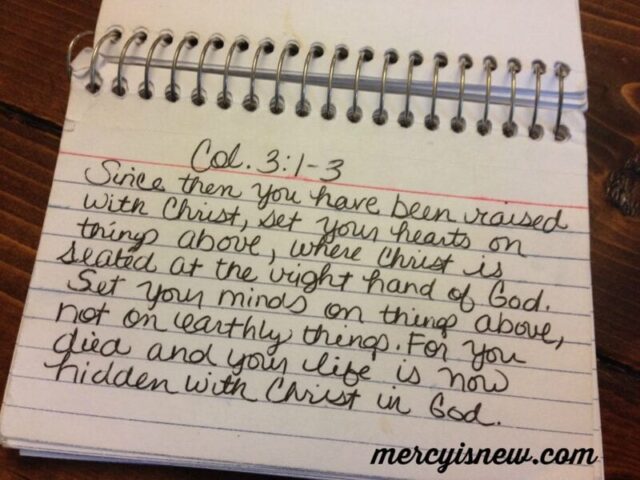 Col. 3:1-3
Since then you have been raised
with Christ, set your hearts on
things above, where Christ is
seated at the right hand of God.
Set your minds on things above,
not on earthly things. For you
died and your life is now
hidden with Christ in God.
mercyisnew.com